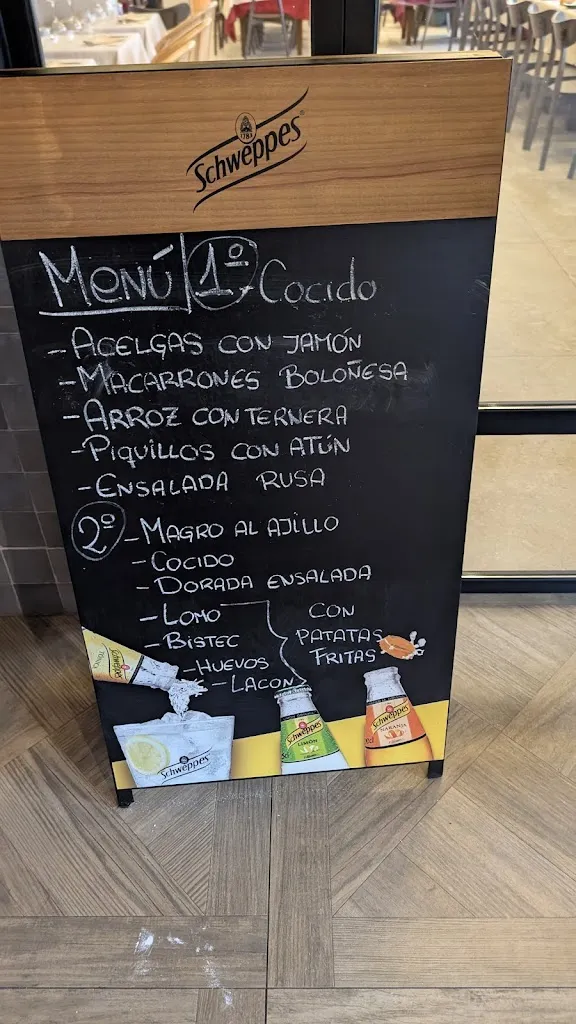 1783
Schweppes
Menú 1º - Cocido
- ACELGAS CON JAMÓN
- MACARRONES BOLOÑESA
- ARROZ CON TERNERA
- PIQUILLOS CON ATÚN
- ENSALADA RUSA
2º - MAGRO AL AJILLO
- COCIDO
- DORADA ENSALADA
- LOMO
- BISTEC
- HUEVOS
- LACON
CON
PATATAS
FRITAS
Schweppes
TÓNICA
Schweppes
Schweppes
LIMÓN
Schweppes
NARANJA